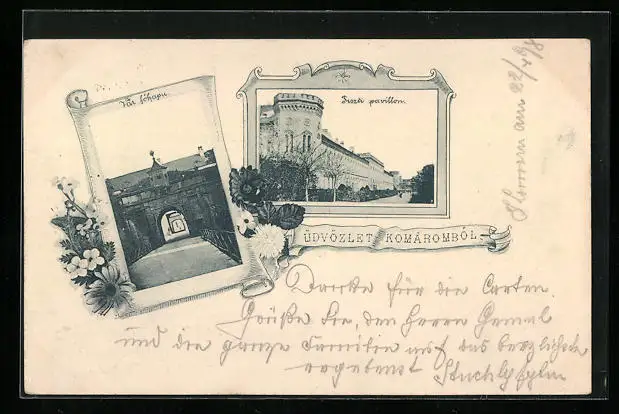 Vár főkapu
Tiszti pavillon.
ÜDVÖZLET KOMÁROMBÓL
am 22/
Danke für die Carten.
Grüße Sie, den Herrn Gemal
und die ganze Familie auf das herzlichste
ergebenst